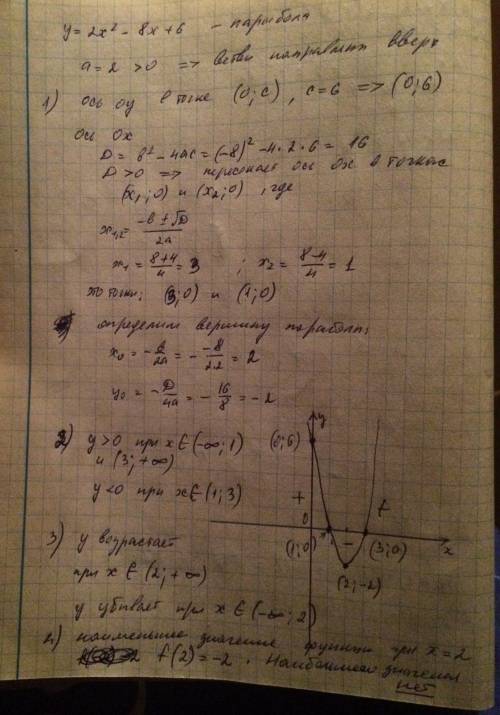 y = 2x² - 8x + 6 - парабола
a = 2 > 0 => ветви направлены вверх
1) ось оу в точке (0; c), c = 6 => (0; 6)
ось ох
D = b² - 4ac = (-8)² - 4·2·6 = 16
D > 0 => пересекает ось ох в точках
(x₁; 0) и (x₂; 0), где
x₁,₂ = (-b ± √D)/2a
x₁ = (8+4)/4 = 3 ; x₂ = (8-4)/4 = 1
это точки: (3; 0) и (1; 0)
определим вершину параболы:
x₀ = -b/2a = - -8/2·2 = 2
y₀ = -D/4a = -16/8 = -2
2) y>0 при x ∈ (-∞; 1)
и (3; +∞)
y<0 при x ∈ (1; 3)
3) y возрастает
при x ∈ (2; +∞)
y убывает при x ∈ (-∞; 2)
4) наименьшее значение функции при x = 2
f(2) = -2. Наибольшего значения
нет
y
(0; 6)
+
+
0
1
-
(1; 0)
(3; 0)
x
(2; -2)